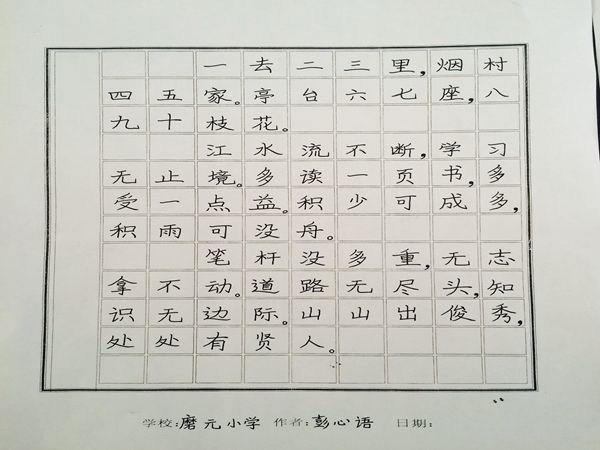 一去二三里,烟村
四五家。亭台六七座,八
九十枝花。
江水流不断,学习
无止境。多读一页书,多
受一点益。积少可成多,
积雨可没舟。
笔杆没多重,无志
拿不动。道路无尽头,知
识无边际。山山出俊秀,
处处有贤人。
学校:磨元小学 作者:彭心语 日期: